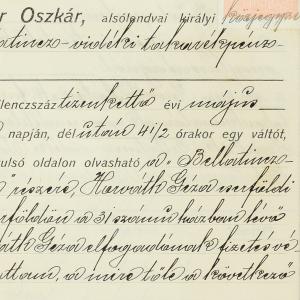 r Oszkár, alsólendvai királyi közjegyző
latincz-vidéki takarékpénz-
ilenczszáz tizenkettő évi május
napján, dél után 4 1/2 órakor egy váltót,
ulsó oldalon olvasható a "Bellatincz-
" részére, Horváth Géza cserföldi
rföldön a 31 számú házban lévő
áth Géza elfogadónak fizetés vé-
ttam, a mire tőle a következő